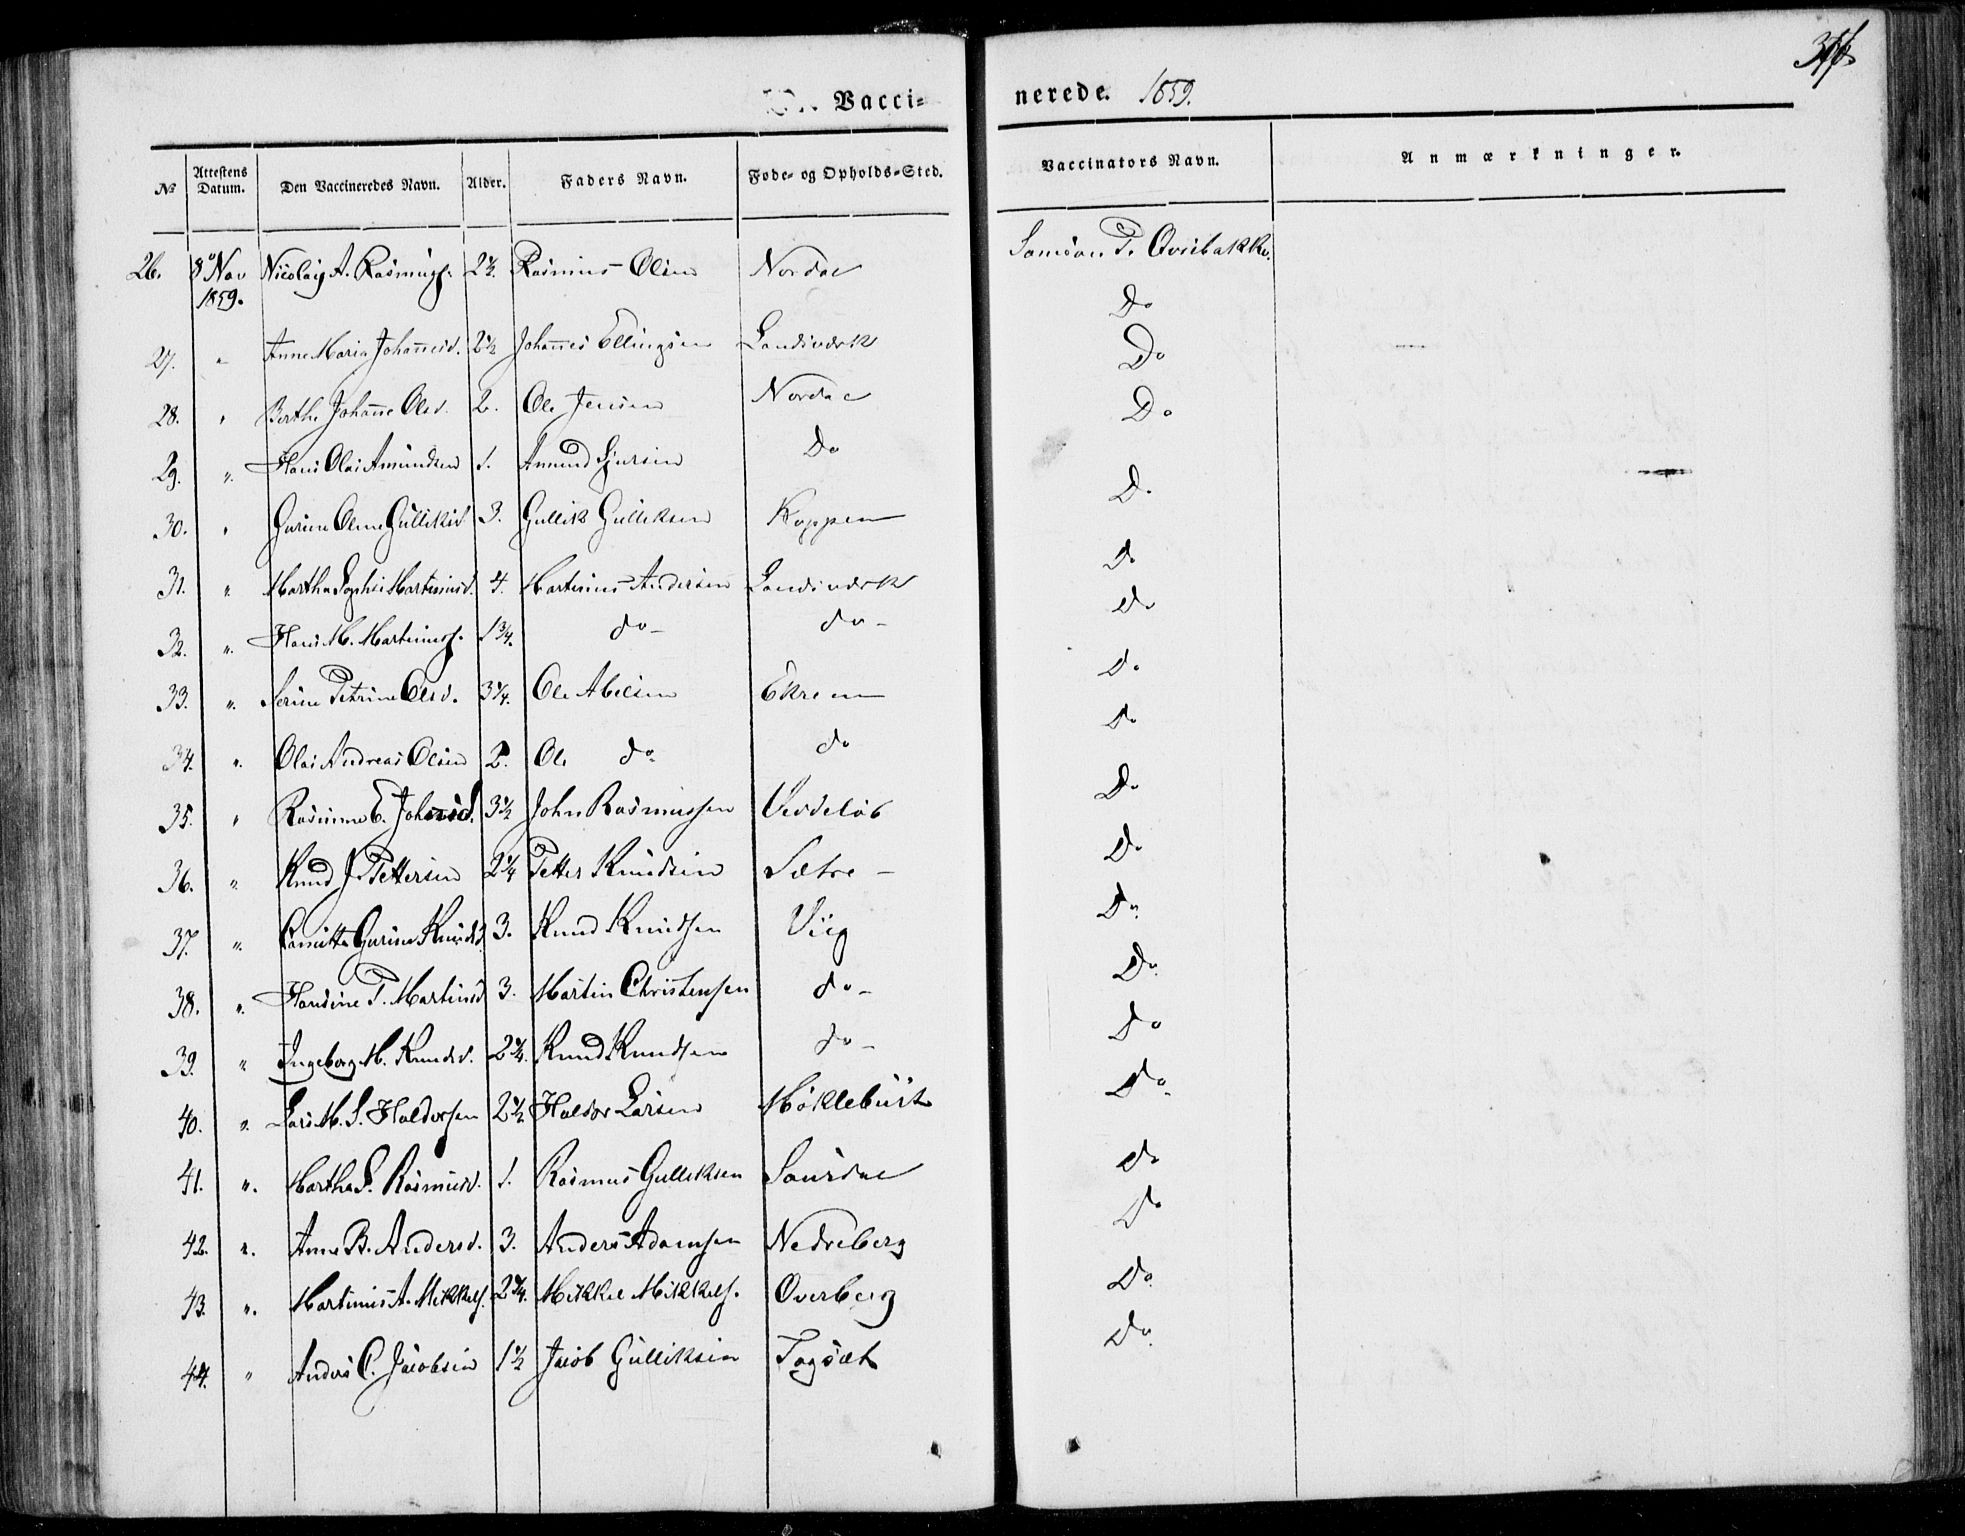 Vacci=
nerede. 1859.
No
Attestens Datum.
Den Vaccineredes Navn.
Alder.
Faders Navn.
Føde= og Opholds=Sted.
Vaccinators Navn.
Anmærkninger.
26. 8 Nov 1859. Nicolaij A. Rasmuss. Rasmus Olsen Nordal
27. " Anne Maria Johannesd. 2½ Johannes Ellingsen Landsverk Do
28. " Berthe Johanne Olsd. 2. Ole Jensen Nordal Do
29. " Hans Olai Amundsen 1. Amund Sjursen Do Do
30. " Gurine Oline Gulliksd. 3. Gullik Gulliksen Koppen Do
31. " Martha Sophie Martinusd. 4. Martinus Andersen Landsverk Do
32. " Hans M. Martinuss. 1¾. do do Do
33. " Serine Petrine Olsd. 3¼. Ole Abelsen Ekrem Do
34. " Olai Andreas Olsen 2. Ole do do Do
35. " Rasmine E. Johnsd. 3½ John Rasmussen Veddeløb Do
36. " Knud J. Pettersen 2¼ Petter Knudsen Sætre Do
37. " Gurine Knudsd. 3. Knud Knudsen Viig Do
38. " Handine P. Martinsd. 3. Martin Christensen do Do
39. " Ingeborg M. Knudsd. Knud Knudsen do Do
40. " Lars M. S. Haldorsen 2½ Haldor Larsen Møklebust Do
41. " Martha S. Rasmusd. 1. Rasmus Gulliksen Saursdal Do
42. " Anne B. Andersd. 3. Anders Adamsen Nedreberg Do
43. " Martinus A. Mikkels. Mikkel Mikkels. Overberg Do
44. " Anders C. Jacobsen 1½ Jacob Gulliksen Do